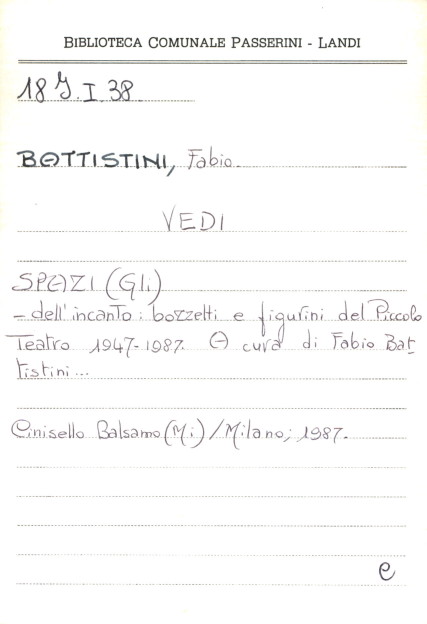 BIBLIOTECA COMUNALE PASSERINI - LANDI
18 J. I. 38.
BATTISTINI, Fabio.
VEDI
SPAZI (Gli)
- dell'incanto: bozzetti e figurini del Piccolo
Teatro 1947-1987. A cura di Fabio Bat
tistini...
Cinisello Balsamo (Mi) / Milano; 1987.
e